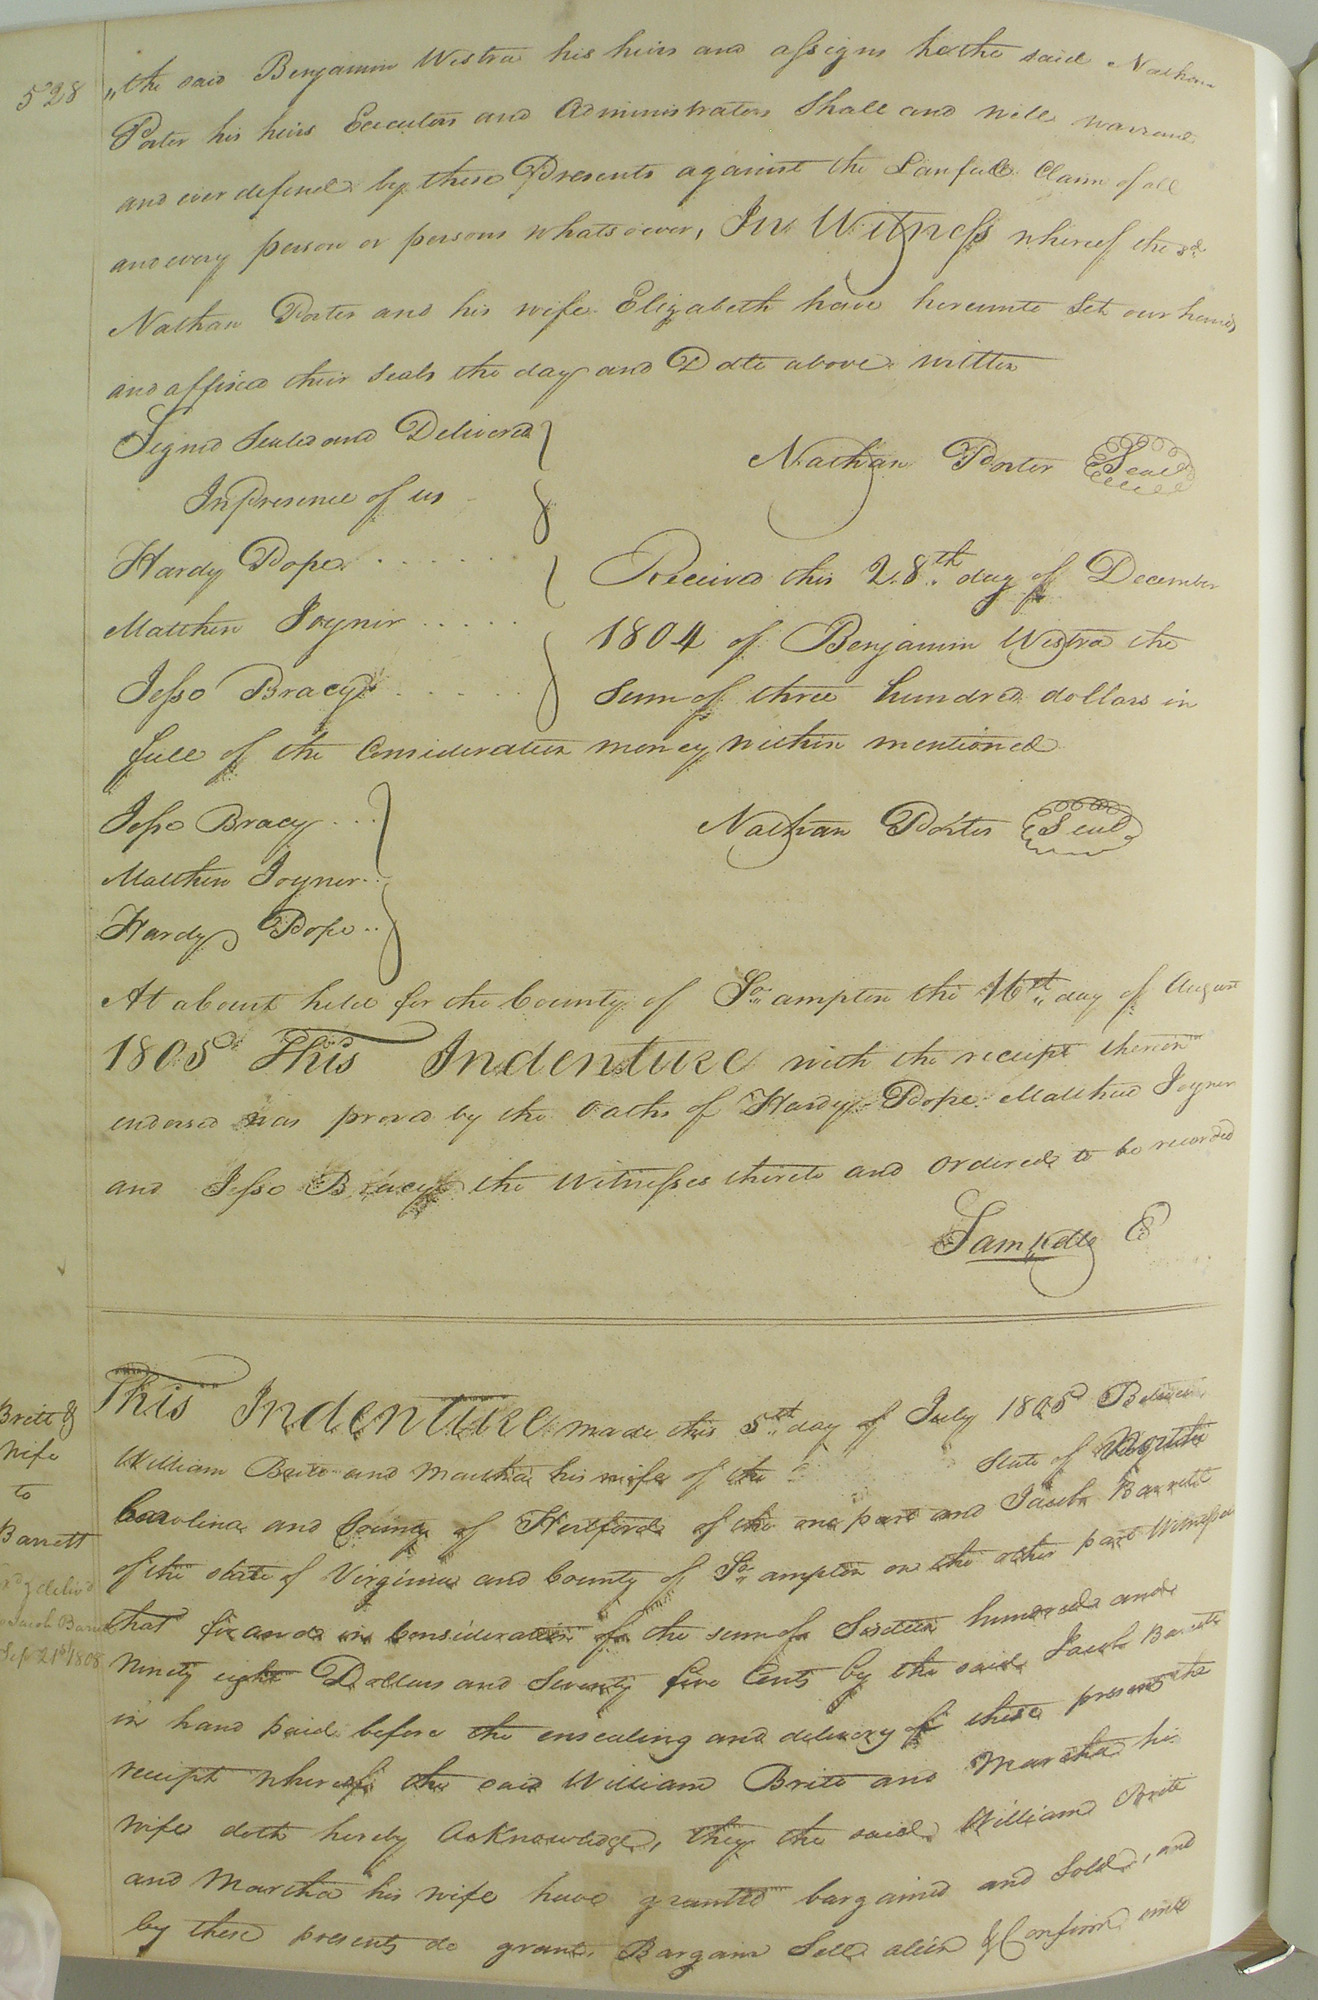 528
"the said Benjamin Westra his heirs and assigns he the said Nathan
Porter his heirs Executors and Administrators Shall and will warrant
and ever defend by these Presents against the Lawfull Claim of all
and every person or persons whatsoever, In Witness whereof the sd.
Nathan Porter and his wife Elizabeth have hereunto Set our hands
and affixed their Seals the day and Date above written
Signed Sealed and Delivered
In Presence of us
Nathan Porter Seal
Hardy Pope . . . . .
Matthew Joyner . . . . .
Jesse Bracy . . . . .
Received this 28th day of December
1804 of Benjamin Westra the
Sum of three hundred dollars in
full of the Consideration money within mentioned
Jesse Bracy . . .
Matthew Joyner . .
Hardy Pope . .
Nathan Porter Seal
At a Court held for the County of So.ampton the 16th day of August
1805 This Indenture with the receipt thereon
endorsed was proved by the Oaths of Hardy Pope Matthew Joyner
and Jesse Bracy the Witnesses thereto and Ordered to be recorded
Sam Kello
Britt &
Wife
to
Barrett
delivd
Jacob Barrett
Sep 21st 1808
This Indenture made this 5th day of July 1805 Between
William Britt and Martha his wife of the State of North
Carolina and County of Hertford of the one part and Jacob Barrett
of the state of Virginia and County of So.ampton on the other part Witnesseth
that for and in Consideration of the sum of Sixteen hundred and
Ninety eight Dollars and Seventy five Cents by the said Jacob Barrett
in hand paid before the ensealing and delivery of these presents the
receipt whereof the said William Britt and Martha his
wife doth hereby acknowledge, they the said William Britt
and Martha his wife have granted bargained and Sold, and
by these presents do grant Bargain Sell alien & Confirm unto